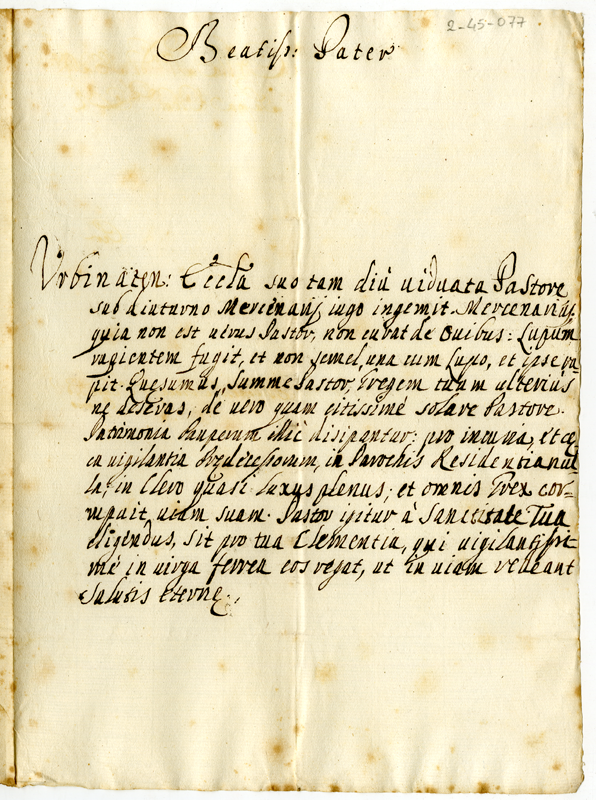 2-45-077
Beatiss: Pater
Urbinaten: Eccla suo tam diù uiduata Pastore
sub diuturno Mercenarij iugo ingemit. Mercenarius,
quia non est uerus Pastor, non curat de Ouibus: Lupum
rugientem fugit, et non semel, una cum Lupo, et ipse ra-
pit. Quesumus, Summe Pastor, Gregem tuum ulterius
ne deseras, de uero quam citissimè solare Pastore.
Patrimonia Pauperum illic disipantur: pro incuria, et cę
ca uigilantia Predecessorum, in Parochis Residentia nul
la; in Clero quasi Luxus plenus; et omnis Grex cor-
rupuit uiam suam. Pastor igitur à Sanctitate Tua
eligendus, sit pro tua Clementia, qui uigilantissi
mè in uirga ferrea eos regat, ut in uiam redeant
Salutis eterne.